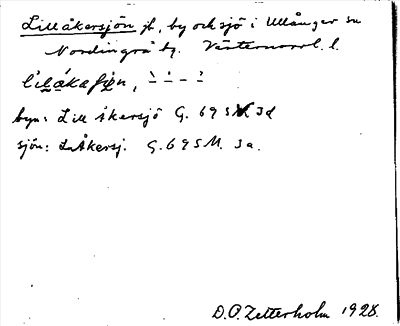 Lillåkersjön jb, by och sjö i Ullånger sn
Nordingrå tg. Västernorrl. l.
byn: Lill Åkersjö G. 69 S Id
sjön: L. Åkersj. G. 69 SM. Ia.
D.O. Zetterholm 1928.